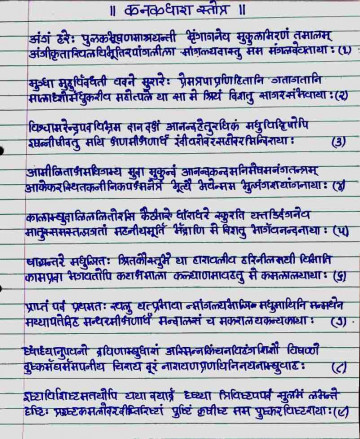 ॥ कनकधारा स्तोत्र ॥
अंगं हरेः पुलकभूषणमाश्रयन्ती भृंगांगनेव मुकुलाभरणं तमालम्
अंगीकृताखिलविभूतिरपांगलीला मांगल्यदास्तु मम मंगलदेवतायाः (१)
मुग्धा मुहुर्विदधती वदने मुरारेः प्रेमत्रपाप्रणिहितानि गतागतानि
माला मधुकरीव महोत्पले या सा मे श्रियं दिशतु सागरसंभवायाः (२)
विश्वामरेन्द्रपदविभ्रम दान दक्षं आनन्दहेतुरधिकं मधुविद्विषोपि
मयि क्षणमीक्षणार्धं (३)
आमीलिताक्षमधिगम्य मुदा मुकुन्दं आनन्दकन्दमनिमेषमनंगतन्त्रम्
आकेकरस्थितकनीनिकपक्ष्मनेत्रं भूत्यै भवेन्मम भुजंगशयांगनायाः (४)
कालाम्बुदालिललितोरसि कैटभारेः धाराधरे स्फुरति या तडिदंगनेव
मातुः समस्तजगतां महनीयमूर्ति भद्राणि मे दिशतु भार्गवनन्दनायाः (५)
बाह्वन्तरे मधुजितः श्रितकौस्तुभे या हारावलीव हरिनीलमयी विभाति
कामप्रदा भगवतोपि कटाक्षमाला कल्याणमावहतु मे कमलालयायाः (६)
प्राप्तं पदं प्रथमतः खलु यत्प्रभावा न्मांगल्यभाजि मधुमाथिनि मन्मथेन
मन्थरमीक्षणार्धं मन्दालसं च मकरालयकन्यकायाः (७)
दद्याद्दयानुपवनो द्रविणाम्बुधारां विषण्णे
दुष्कर्मघर्ममपनीय चिराय दूरं नारायणप्रणयिनीनयनाम्बुवाहः (८)
यया दयार्द्र दृष्ट्या त्रिविष्टपपदं सुलभं लभन्ते
दृष्टिः प्रहृष्टकमलोदरदीप्तिरिष्टां पुष्टिं कृषीष्ट मम पुष्करविष्टरायाः (९)